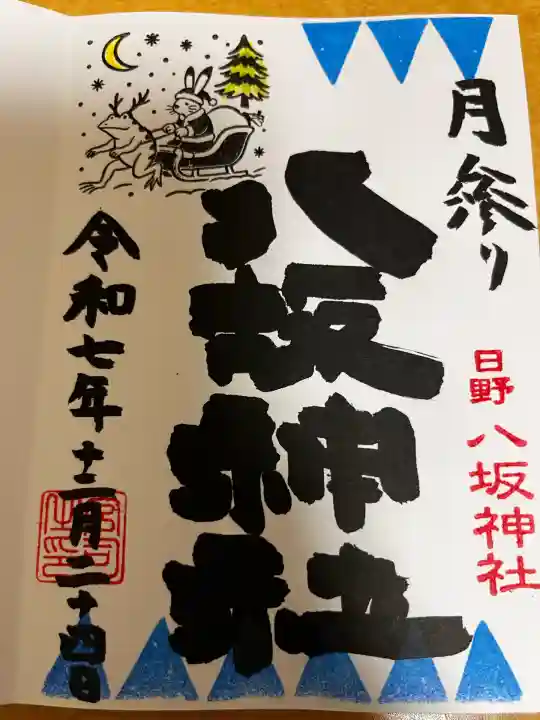 月参り
日野八坂神社
八坂神社
令和七年十二月二十四日